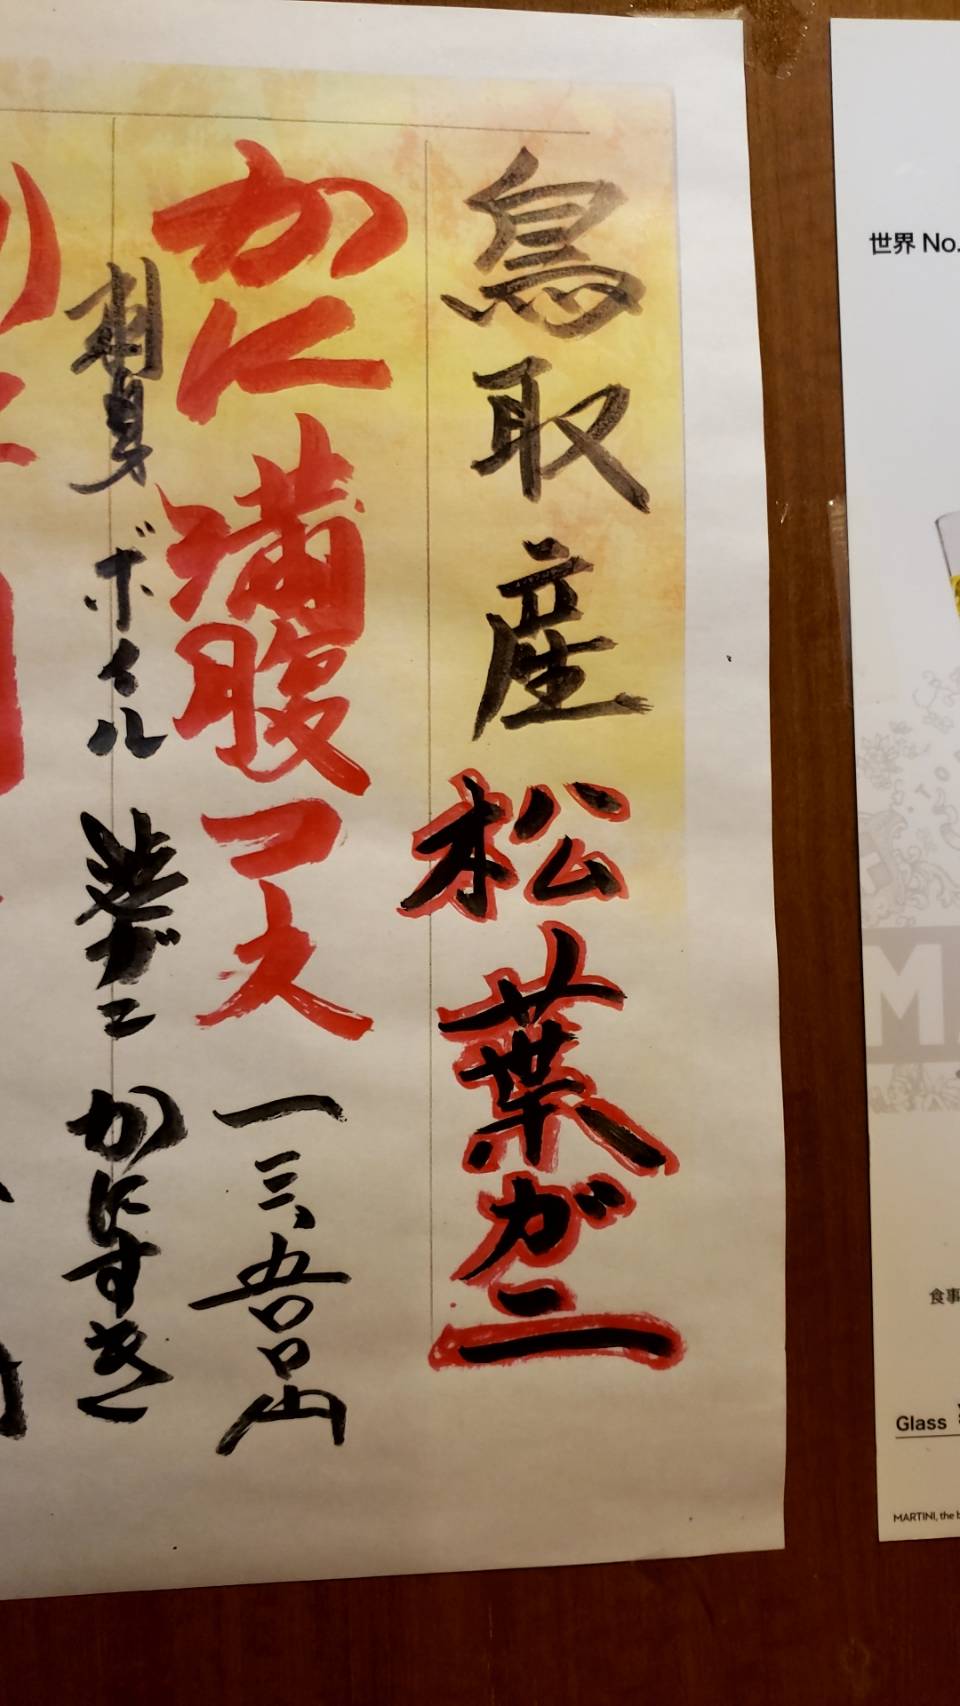 鳥取産松葉ガニ
かに満腹コース 一三、五〇〇円
刺身 ボイル 焼ガニ かにすき
世界 No.
食事
Glass
MARTINI, the